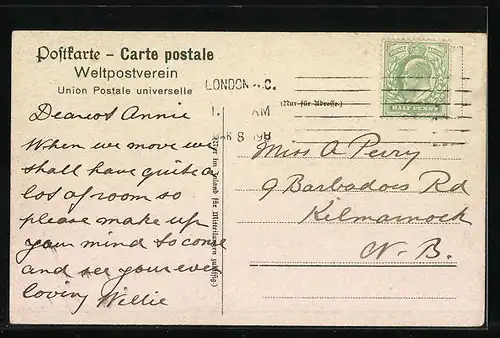 Postkarte – Carte postale
Weltpostverein
Union Postale universelle
LONDON
AM
8
HALF PENNY
(Nur für Adresse.)
Dearest Annie
When we move we
shall have quite a
lot of room so
please make up
your mind to come
and see your ever
loving Willie
Miss A Perry
9 Barbadoes Rd
Kilmarnock
N. B.